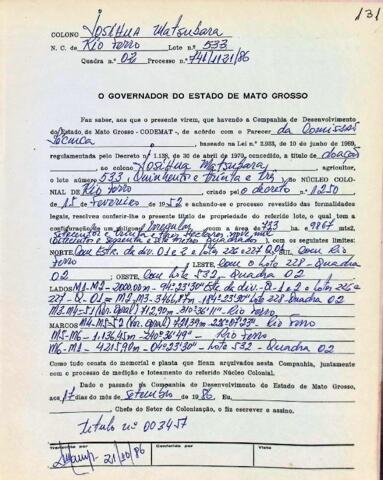 131
COLONO Yoschua Matsubara
N. C. de Rio Ferro Lote n.º 533
Quadra n.º 02 Processo n.º 741/1131/86
O GOVERNADOR DO ESTADO DE MATO GROSSO
Faz saber, aos que o presente virem, que havendo a Companhia de Desenvolvimento
do Estado de Mato Grosso - CODEMAT -, de acôrdo com o Parecer da Comissão
Técnica baseado na Lei n.º 2.933, de 10 de junho de 1969,
regulamentada pelo Decreto n.º 1.138, de 30 de abril de 1970, concedido, a título de doação
ao colono Yoschua Matsubara, agricultor,
o lote número 533 (Quinhentos e Trinta e Três) do NÚCLEO COLO-
NIAL DE Rio Ferro, criado pelo decreto n.º 1250
de 15 de fevereiro 1952 e achando-se o processo revestido das formalidades
legais, resolve conferir-lhe o presente título de propriedade do referido lote, o qual tem a
configuração de um polígono irregular com a área de 733 ha 9867 mts2.
Setecentos e Trinta e Três Hectares, nove mil
Oitocentos e sessenta e sete metros quadrados), com os seguintes limites:
NORTE, Com Estr. de Div. Q-1 e 2 e lotes 226 e 227 Q.01 Com Rio
Ferro LESTE Com o Lote 228 - Quadra
02; OESTE, Com Lote 532 - Quadra 02
LADOS M1-M2 - 2000,00m - 94º23'30" Este. de div. Q-1 e 2 e lotes 226 e
227 - Q. 01 = M2-M3 - 3466,87m - 184º23'30" Lote 228 Quadra 02
MARCOS M4-M5 Rio Ferro
M5-M6 - 1.136,45m - 240º36'49" - Rio Ferro
M6-M1 - 4215,90m - 04º23'30" - Lote 532 - Quadra 02
Como tudo consta do memorial e planta que ficam arquivados nesta Companhia, juntamente
com o processo de medição e loteamento do referido Núcleo Colonial.
Dado e passado na Companhia de Desenvolvimento do Estado de Mato Grosso,
aos 17 dias do mês de Setembro de 1986. Eu,
Chefe do Setor de Colonização, o fiz escrever e assino.
Título nº 003457
Transcrito por Conferido por Visto
21/10/86